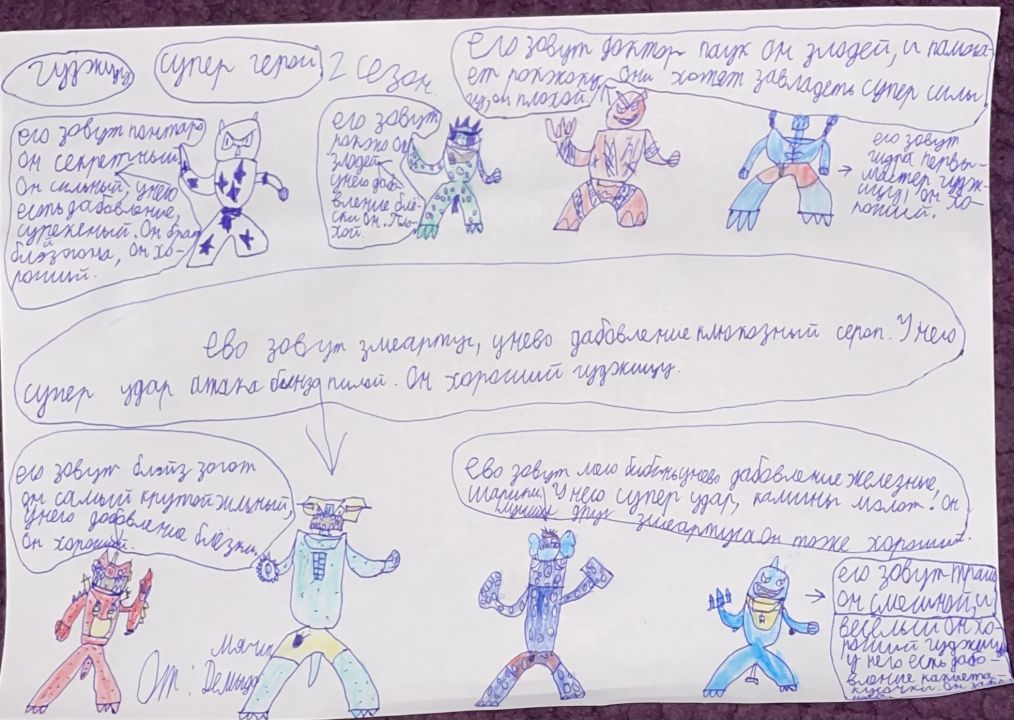 гуджицу
супер герои
2 сезон.
его зовут доктор паук он злодей, и памога-
ет рокжоку, Они хотят завладеть супер силы
он плохой.
его зовут пантаро
он секретный
Он сильный, унего
есть дабовление,
Он брат
блэзогона, он хо-
роший.
его зовут
рокжо он
злодей
унего даб-
вление блё-
ски он. Пло-
хой.
его зовут
гидра первы-
мастер гудж-
ицу, он хо-
роший.
ево зовут змеартуг, унево дабовление клюкозный сероп. У него
супер удар атака бензапилой. Он хороший гуджицу.
его зовут блэйз зогот
он самый крутой
Унего добовление блёзки
Он хороший.
Ево зовут унево дабовление железные,
шарики, У него супер удар, камины молот. Он
лучший друг змеартуга Он тоже хороший.
его зовут
он смешной, и
веселый он хо-
роший гуджицу
у него есть дабо-
вление
От:
Мячин
Демида